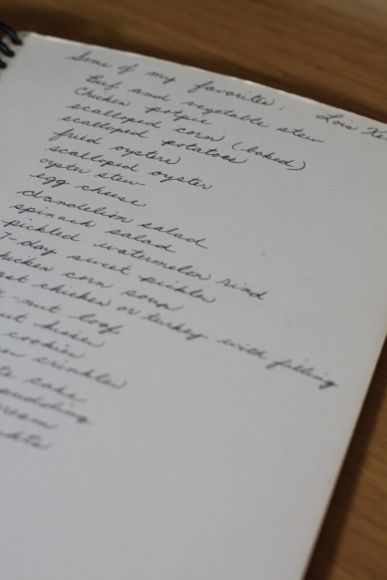 Some of my favorites: Lois
Beef and vegetable stew
Chicken potpie
scalloped corn (baked)
scalloped potatoes
fried oysters
scalloped oyster
oyster stew
egg cheese
dandelion salad
spinach salad
pickled watermelon rind
7-day sweet pickles
chicken corn soup
chicken or turkey with filling
-nut loaf
kisses
cookies
crinkles
cake
pudding